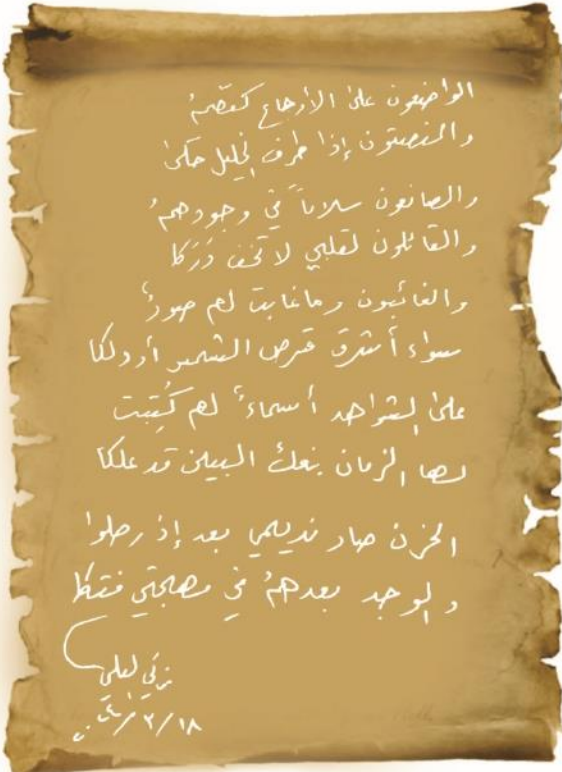 الواضعون على الأوجاع كفّهمُ
والمنصتون إذا طرف الخليل حكى
والصانعون سلاماً في وجودهمُ
والقائلون لقلبي لا تخف دَرَكا
والغائبون وما غابت لهم صورٌ
سواء أشرق قرص الشمس أو دلكا
على الشواهد أسماءٌ لهم كُتِبت
لها الزمان بنعك البين قد علكا
الحزن صار نديمي بعد إذ رحلوا
والوجد بعدهمُ في مهجتي فتكا
زكي العلي
١٨/٣/